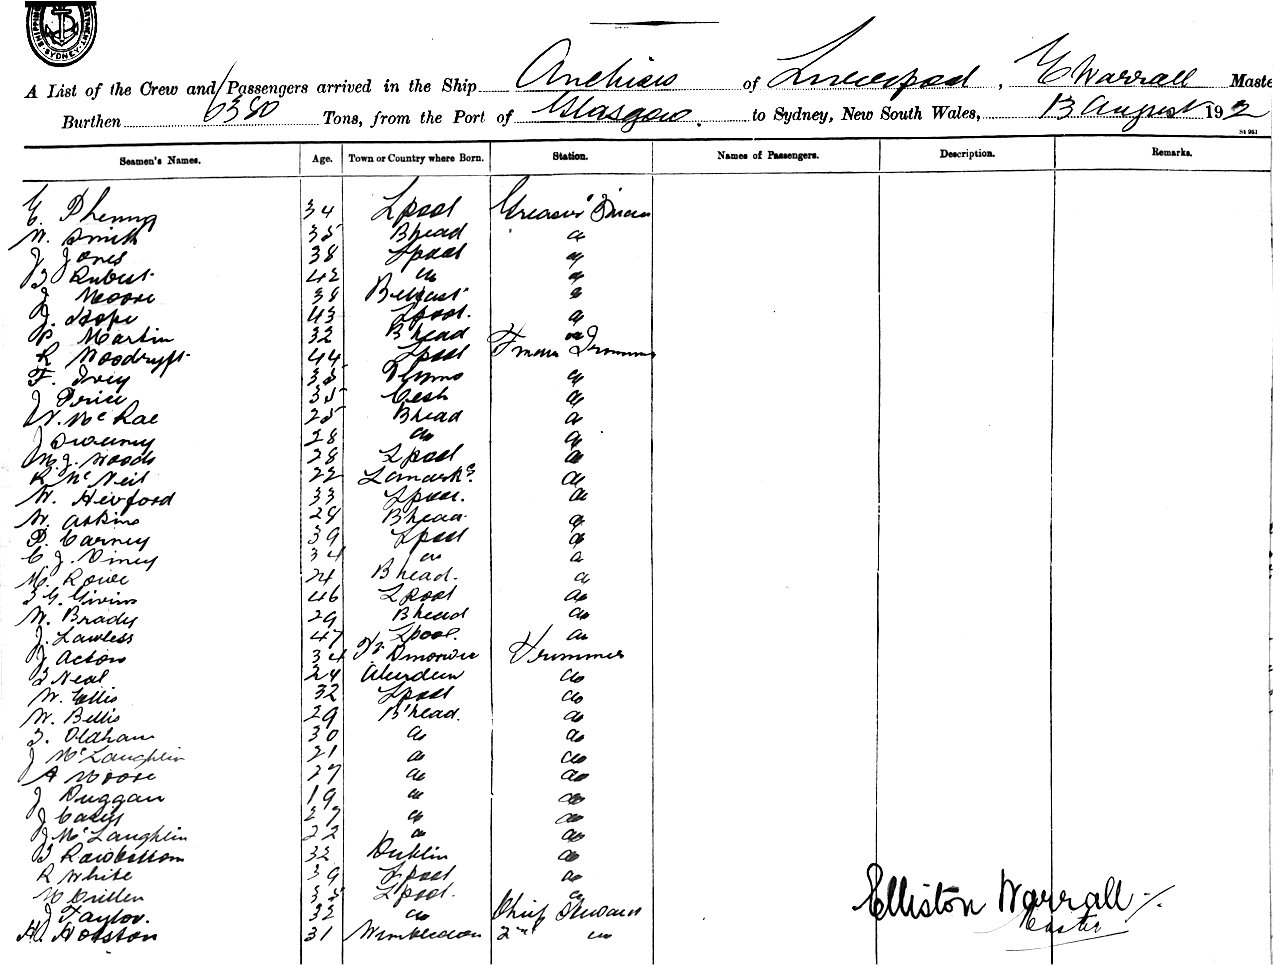 SHIPPING DEPARTMENT SYDNEY
A List of the Crew and Passengers arrived in the Ship Anchises of Liverpool, E Warrall Maste
Burthen 6380 Tons, from the Port of Glasgow. to Sydney, New South Wales, 13 August 192
St 951
Seamen's Names. Age. Town or Country where Born. Station. Names of Passengers. Description. Remarks.
E. 34 Lpool Greaser
W. Smith 35 B'head do
J Jones 38 Lpool do
42 do do
J Moore 38 Belfast do
J. Hope 43 Lpool. do
P Martin 32 B'head do
R Woodruff 44 Lpool Fman Trimmer
F. Ivey 38 do
J Price 35 do
W. McRae 25 B'head do
J Sweeney 28 do do
W. J. Woods 28 Lpool do
R McNeil 22 Lanarks. do
W. 33 Lpool. do
W. Askins 28 B'head do
P. Carney 39 Lpool do
C J. Viney 34 do do
M. Rowe 24 B'head. do
46 Lpool do
W. Brady 29 B'head do
J. Lawless 47 Lpool. do
J Acton 34 Trimmer
T Neal 24 Aberdeen do
W. Ellis 32 Lpool do
W. Bellis 29 B'head. do
T. Oldham 30 do do
J McLaughlin 21 do do
A Moore 27 do do
J Duggan 19 do do
J Casey 27 do do
J McLaughlin 22 do do
T Rawbottom 32 Dublin do
R White 39 Lpool do
W Cullen 35 Lpool. do
J Taylor. 32 do Chief Steward
H. Hotston 31 Wimbledon 2nd do
Elliston Warrall
Master